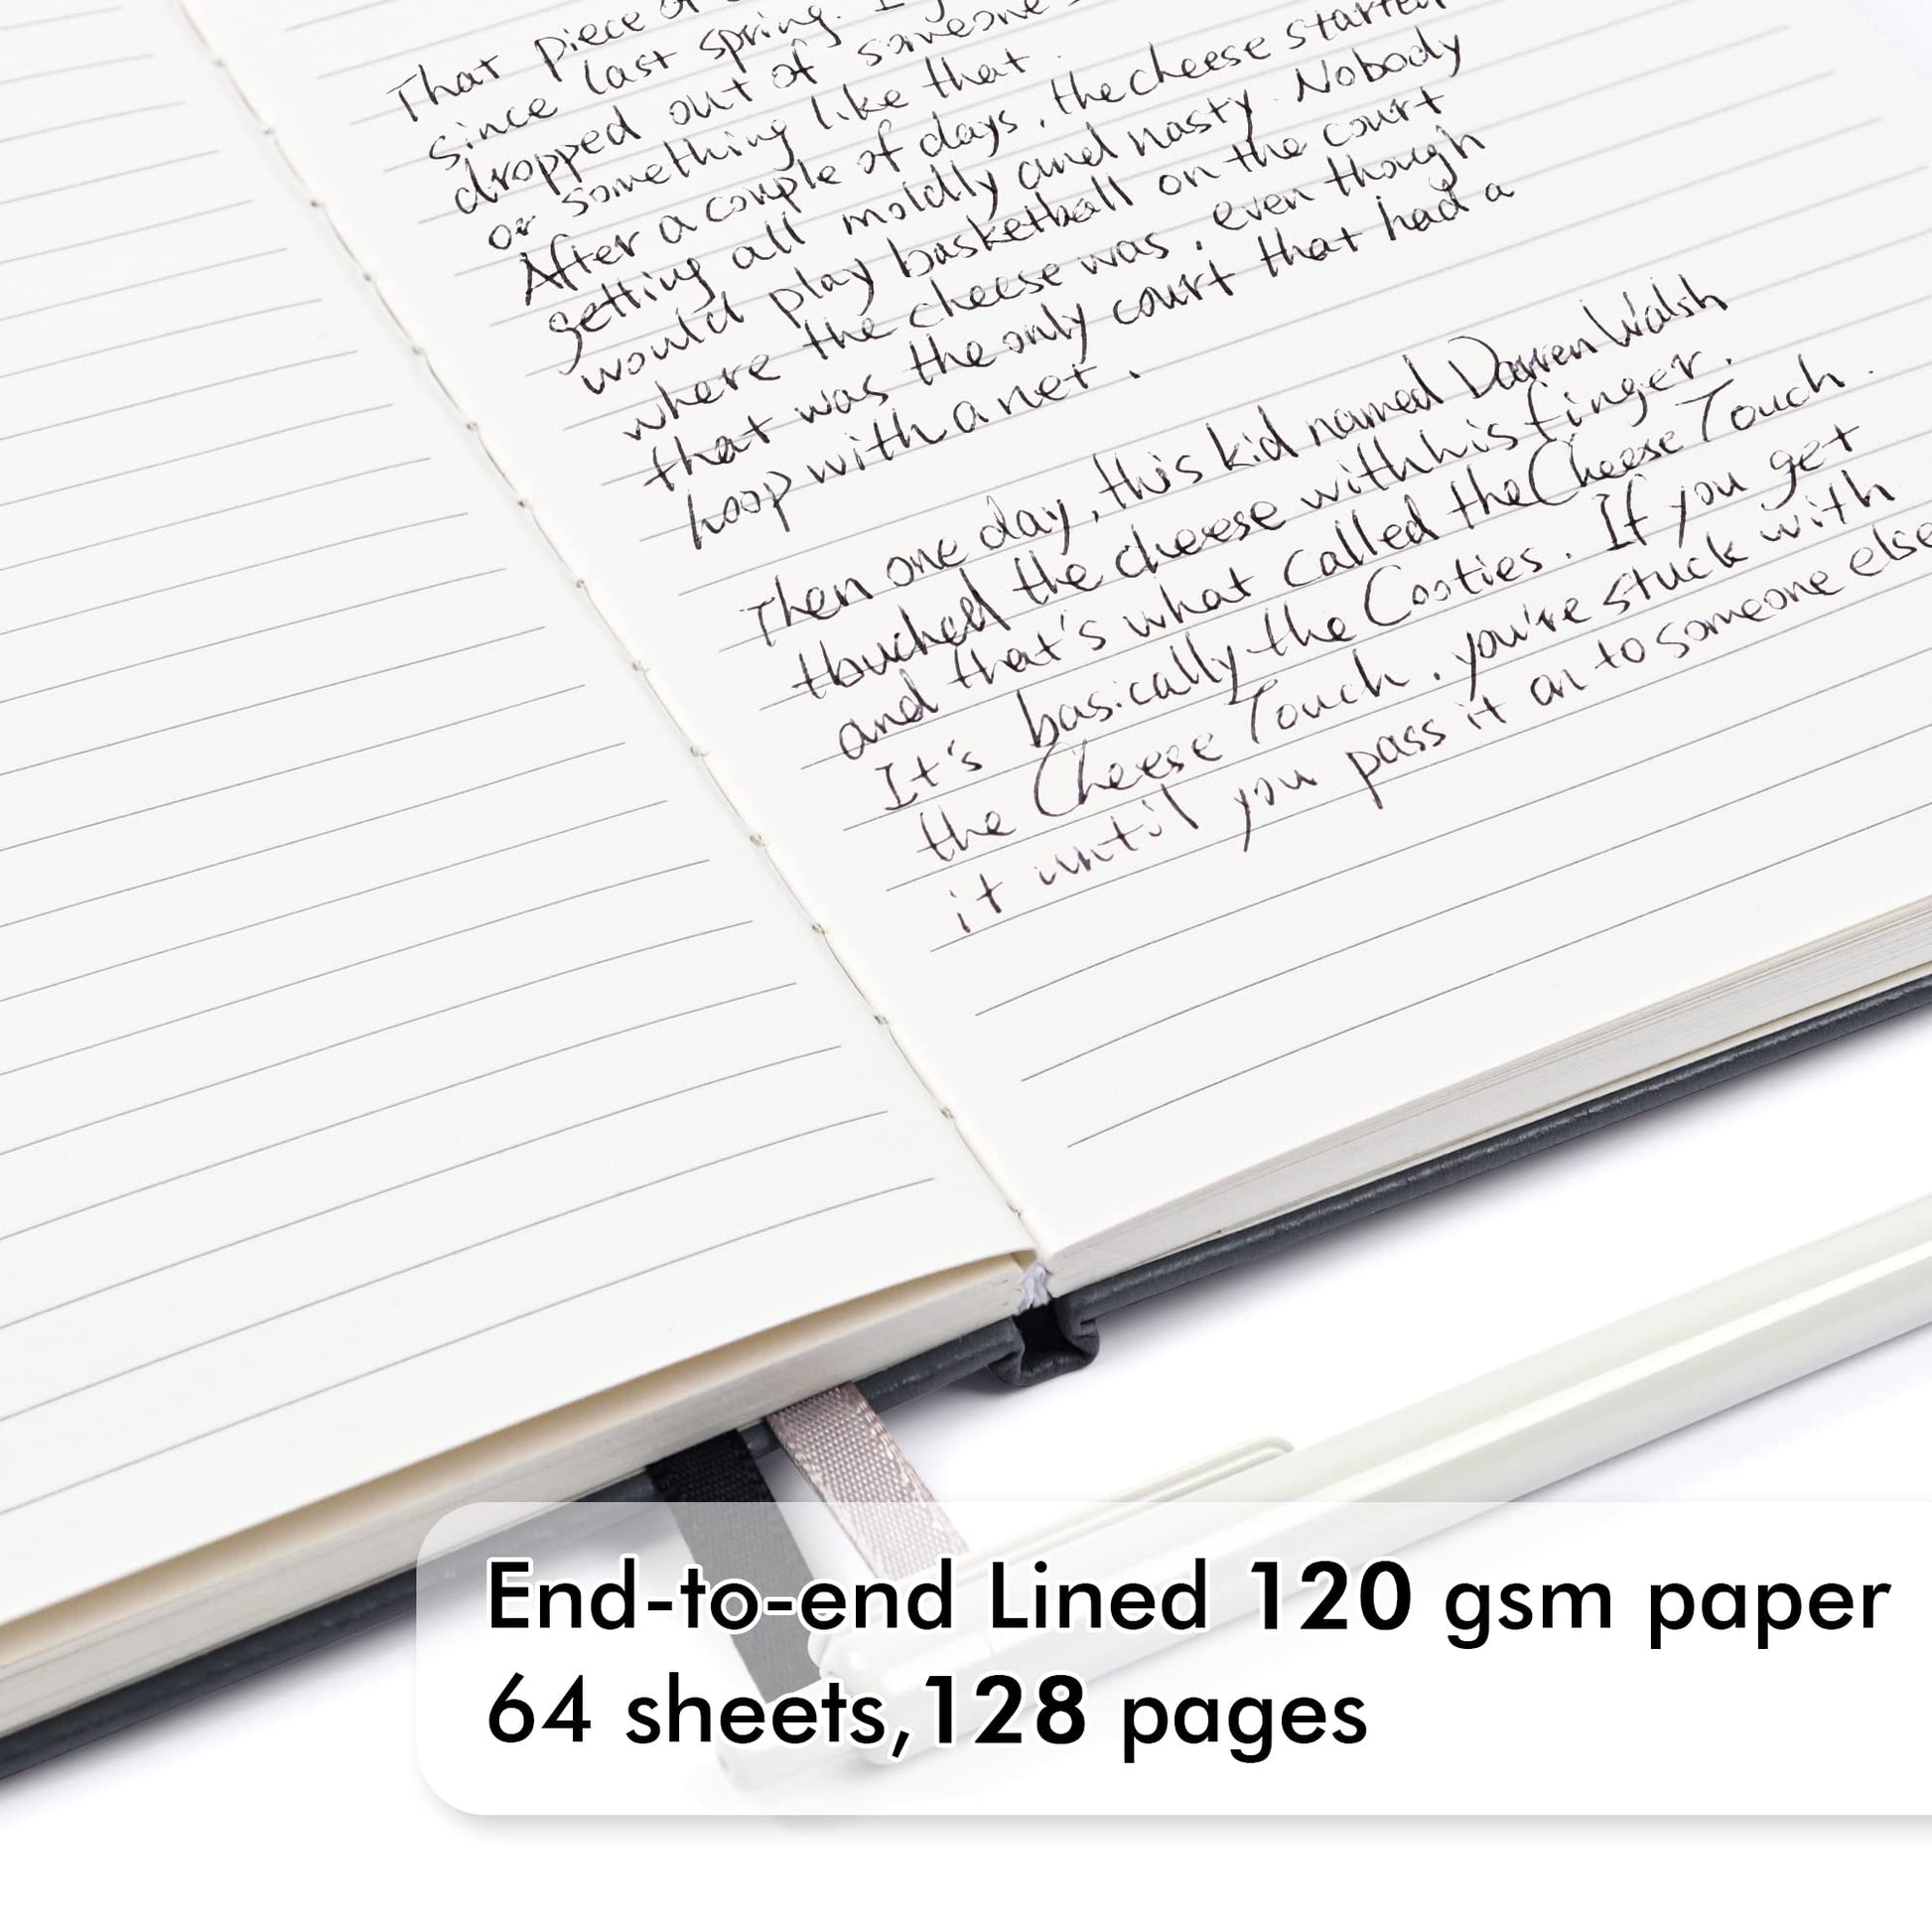 That piece of
since last spring. I
dropped out of someone's
or something like that.
After a couple of days, the cheese started
getting all moldly and nasty. Nobody
would play basketball on the court
where the cheese was, even though
that was the only court that had a
hoop with a net.
Then one day, this kid named Darren Walsh
touched the cheese with his finger.
and that's what called the Cheese Touch.
It's basically the Cooties. If you get
the Cheese Touch, you're stuck with
it until you pass it on to someone else
End-to-end Lined 120 gsm paper
64 sheets,128 pages